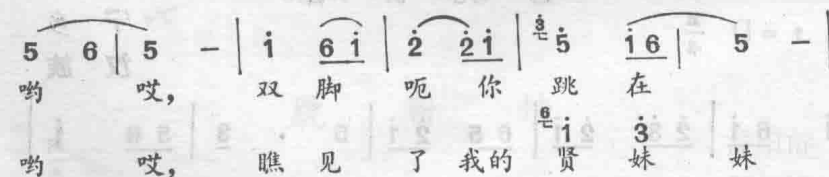 5 6 | 5 － | i̇ 6 i̇ | 2̇ 2̇ i̇ | 3̇ 5̇ i̇ 6 | 5 － |
哟 哎, 双 脚 呃 你 跳 在
6 i̇ 3̇
哟 哎, 瞧 见 了 我的 贤 妹 妹